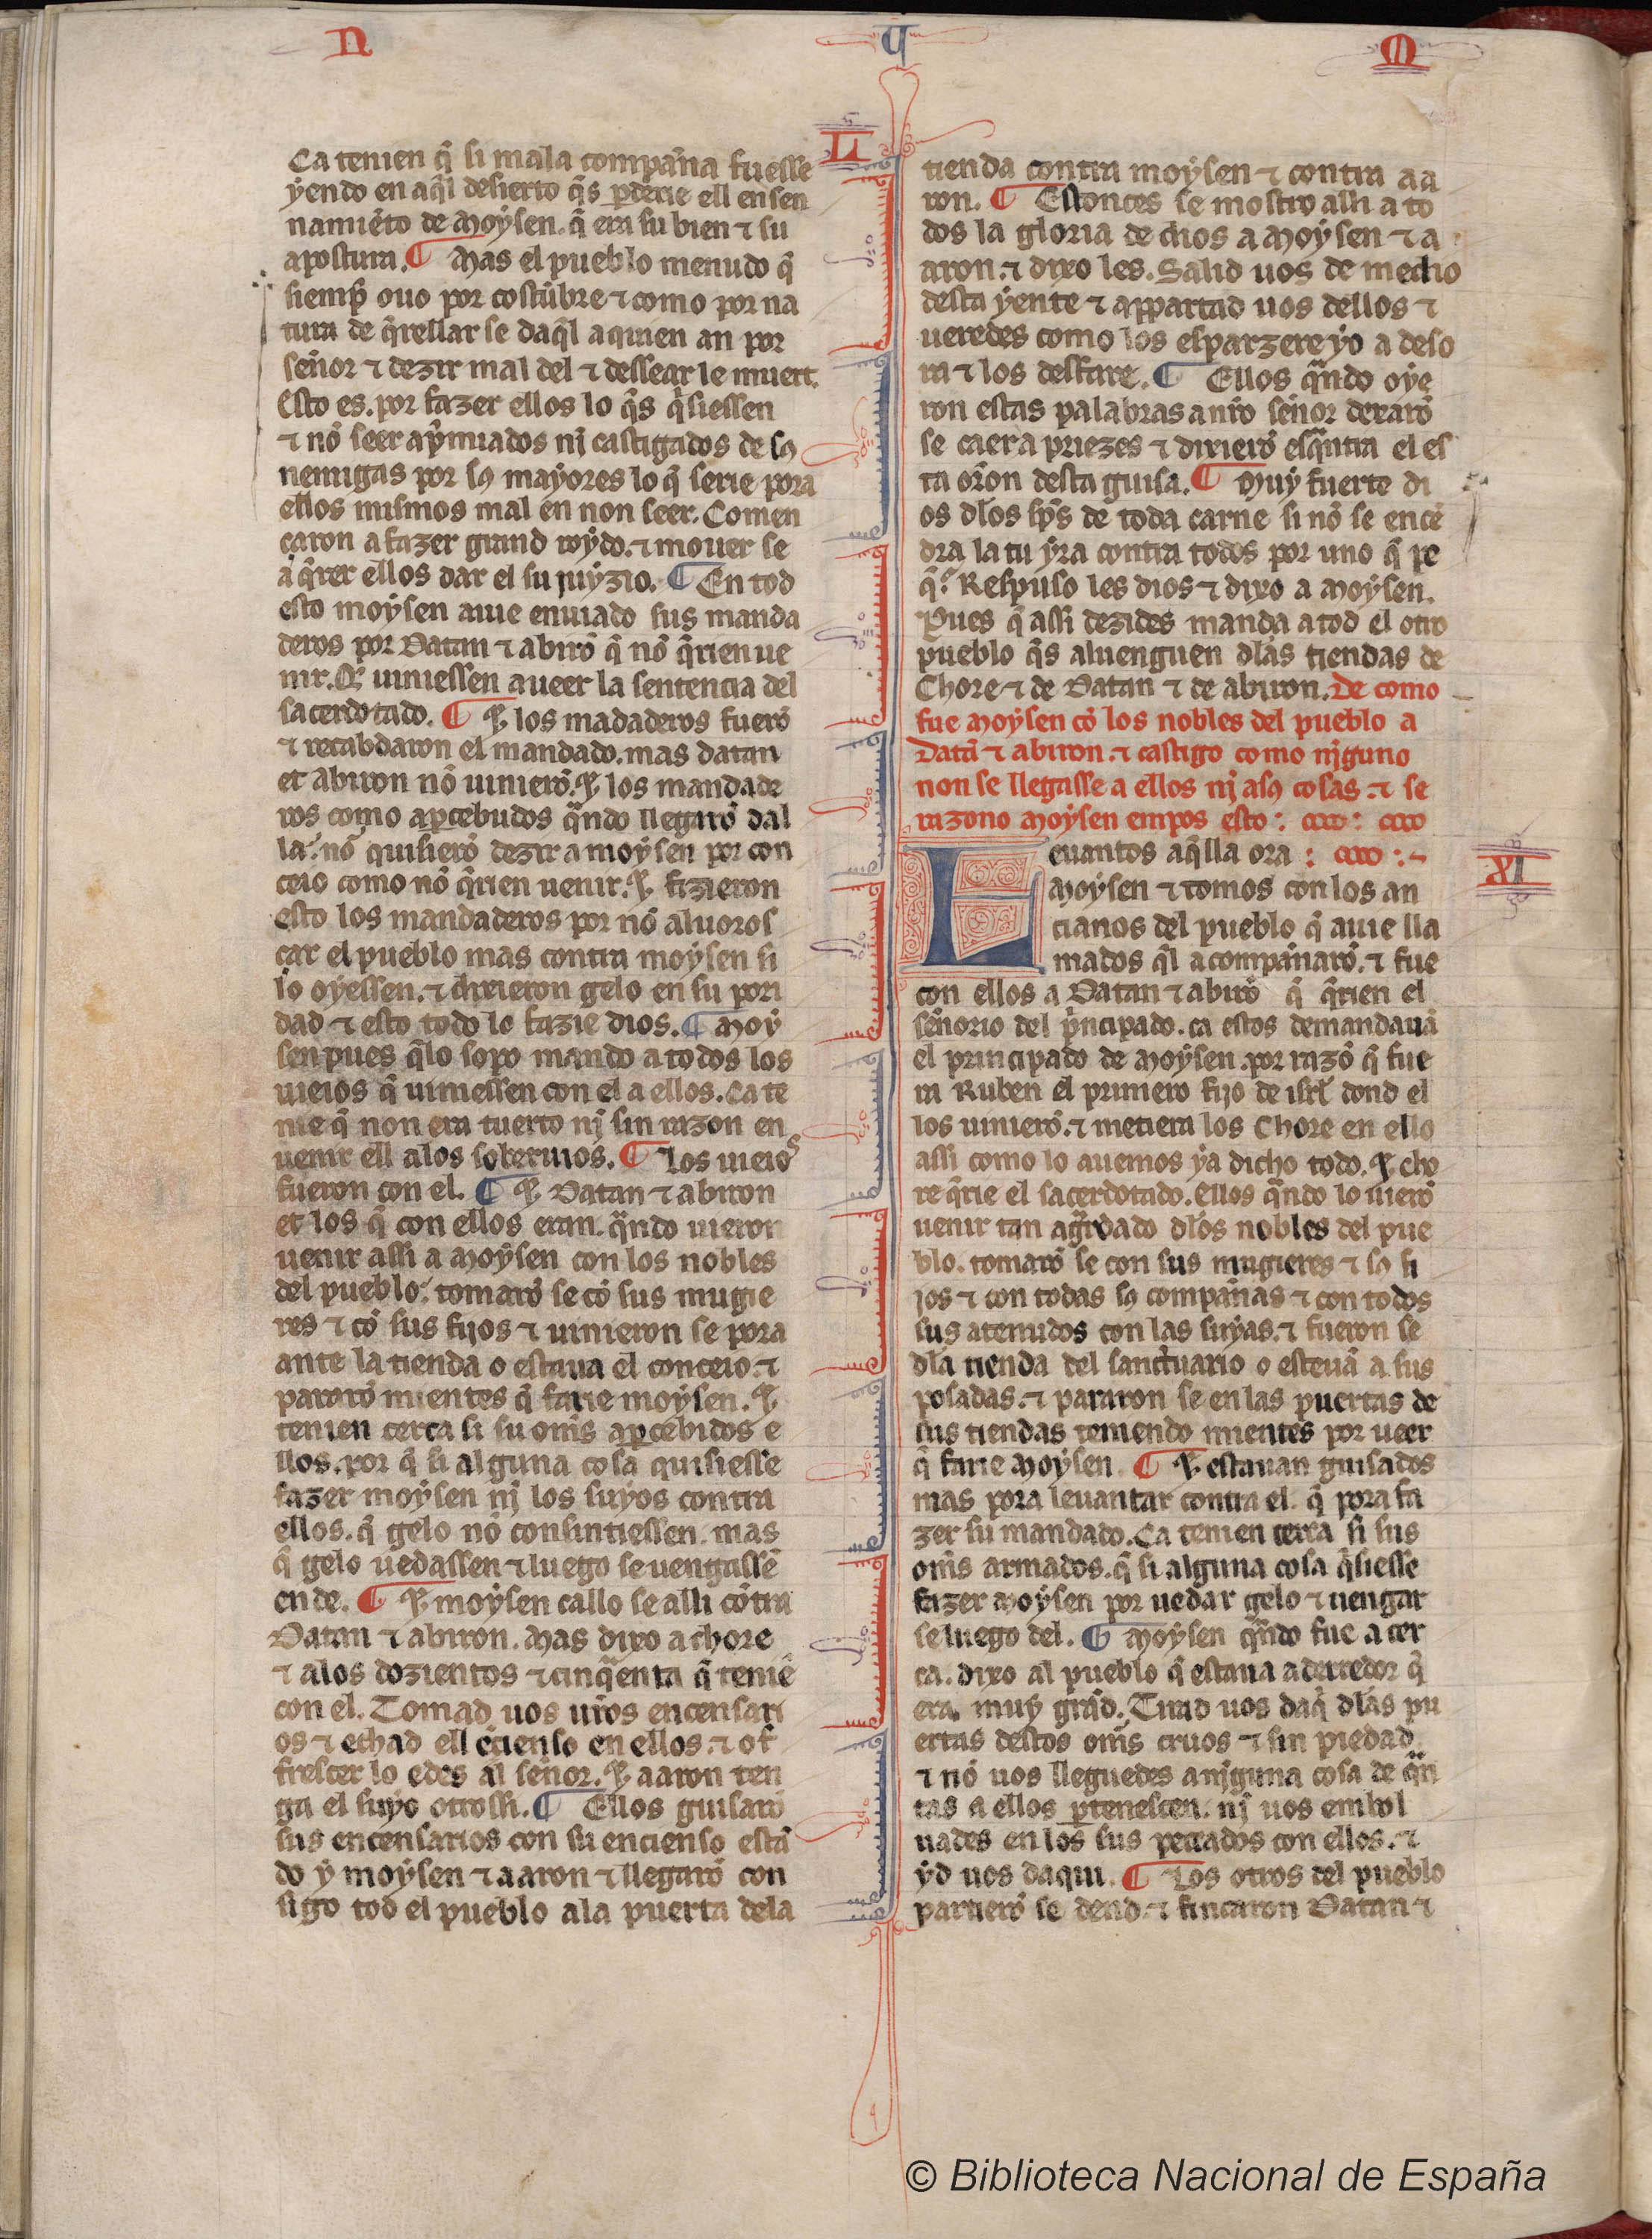 N
U
M
LI
Ca tenien q̃ si mala compan̄a fuesse
ẏendo en aq̃l desierto q̃s ꝑderie ell ensen
namiẽto de Moẏsen. q̃ era su bien ⁊ su
apostura. ¶ Mas el pueblo menudo q̃
siemp̃ ouo por costũbre ⁊ como por na
tura de q̃rellar se daq̃l a quien an por
sen̄or ⁊ dezir mal del ⁊ dessear le muert.
Esto es. por fazer ellos lo q̃s q̃siessen
⁊ nõ seer ap̃miados nj castigados de sꝯ
nemigas por sꝯ maẏores lo q̃ serie pora
ellos mismos mal en non seer. Comen
çaron a fazer grand roẏdo. ⁊ mouer se
a q̃rer ellos dar el su juẏzio. ¶ En tod
esto moẏsen auie enuiado sus manda
deros por Datan ⁊ abirõ q̃ nõ q̃rien ue
nir. Q̃ uiniessen a ueer la sentencia del
sacerdotado. ¶ ⁊ los mãdaderos fuerõ
⁊ recabdaron el mandado. mas datan
et abiron nõ uinierõ. ⁊ los mandade
ros como aꝑcebudos q̃ndo llegarõ dal
la. nõ quisierõ dezir a moẏsen por con
ceio como nõ q̃rien uenir. ⁊ fizieron
esto los mandaderos por nõ aluoros
çar el pueblo mas contra moẏsen si
lo oẏessen. ⁊ dixieron gelo en su pori
dad ⁊ esto todo lo fazie dios. ¶ Moẏ
sen pues q̃lo sopo mando a todos los
uieios q̃ uiniessen con el a ellos. Ca te
nie q̃ non era tuerto nj sin razon en
uenir ell alos soberuios. ¶ Los uieios
fueron con el. ¶ ⁊ Datan ⁊ abiron
et los q̃ con ellos eran. q̃ndo uieron
uenir assi a Moẏsen con los nobles
del pueblo. tomarõ se cõ sus mugie
res ⁊ cõ sus fijos ⁊ uinieron se pora
ante la tienda o estaua el conceio. ⁊
pararõ mientes q̃ farie moẏsen. ⁊
tenien cerca si su om̃s aꝑcebidos e
llos. por q̃ si alguna cosa quisiesse
fazer moẏsen nj los suẏos contra
ellos. q̃ gelo nõ consintiessen. mas
q̃ gelo uedassen ⁊ luego se uengassẽ
ende. ¶ ⁊ moẏsen callo se alli cõtra
Datan ⁊ abiron. Mas dixo a chore
⁊ alos dozientos ⁊ cinq̃enta q̃ teniẽ
con el. Tomad uos ur̃os encensari
os ⁊ echad ell ẽcienso en ellos. ⁊ of
frescer lo edes al sen̄or. ⁊ aaron ten
ga el suẏo otrossi. ¶ Ellos guisarõ
sus encensarios con su encienso estã
do ẏ moẏsen ⁊ aaron ⁊ llegarõ con
sigo tod el pueblo ala puerta dela
tienda contra moẏsen ⁊ contra aa
ron. ¶ Estonces se mostro alli a to
dos la gloria de dios a Moẏsen ⁊ a
aron. ⁊ dixo les. Salid uos de medio
desta ẏente ⁊ appartad uos dellos ⁊
ueredes como los esparzere ẏo a deso
ra ⁊ los desfare. ¶ Ellos q̃ndo oẏe
ron estas palabras a nr̃o sen̄or dexarõ
se caer a priezes ⁊ dixierõ esq̃ntra el es
ta or̃on desta guisa. ¶ Muẏ fuerte di
os dlos sp̃s de toda carne si nõ se encẽ
dra la tu ẏra contra todos por uno q̃ pe
q̃. Respuso les dios ⁊ dixo a Moẏsen.
Pues q̃ assi dezides manda a tod el otro
pueblo q̃s aluenguen dlas tiendas de
Chore ⁊ de Datan ⁊ de abiron. De como
fue Moẏsen cõ los nobles del pueblo a
Datã ⁊ abiron. ⁊ castigo como njguno
non se llegasse a ellos nj a sꝯ cosas. ⁊ se
razono Moẏsen empos esto:
XI
Leuantos aq̃lla ora
Moẏsen ⁊ tomos con los an
cianos del pueblo q̃ auie lla
mados q̃l acompan̄arõ. ⁊ fue
con ellos a Datan ⁊ abirõ q̃ q̃rien el
sen̄orio del p̃ncipado. ca estos demandauã
el principado de Moẏsen. por razõ q̃ fue
ra Ruben el primero fijo de isrl̃ dond el
los uinierõ. ⁊ metiera los Chore en ello
assi como lo auemos ẏa dicho todo. ⁊ cho
re q̃rie el sacerdotado. Ellos q̃ndo lo uierõ
uenir tan ag̃rdado dlos nobles del pue
blo. tomarõ se con sus mugieres ⁊ sꝯ fi
jos ⁊ con todas sꝯ compan̄as ⁊ con todos
sus atenudos con las suẏas. ⁊ fueron se
dla tienda del sanctuario o esteuã a sus
posadas. ⁊ pararon se en las puertas de
sus tiendas teniendo mientes por ueer
q̃ farie Moẏsen. ¶ ⁊ estauan guisados
mas pora leuantar contra el. q̃ pora fa
zer su mandado. Ca tenien cerca si sus
om̃s armados. q̃ si alguna cosa q̃siesse
fazer Moẏsen por uedar gelo ⁊ uengar
se luego del. ¶ Moẏsen q̃ndo fue a cer
ca. dixo al pueblo q̃ estaua aderredor q̃
era muẏ grãd. Tirad uos daq̃ dlas pu
ertas destos om̃s cruos ⁊ sin piedad
⁊ nõ uos lleguedes a njguna cosa de q̃n
tas a ellos ꝑtenescen. nj uos embol
uades en los sus peccados con ellos. ⁊
ẏd uos daqui. ¶ Los otros del pueblo
partierõ se dend. ⁊ fincaron Datan ⁊
© Biblioteca Nacional de España